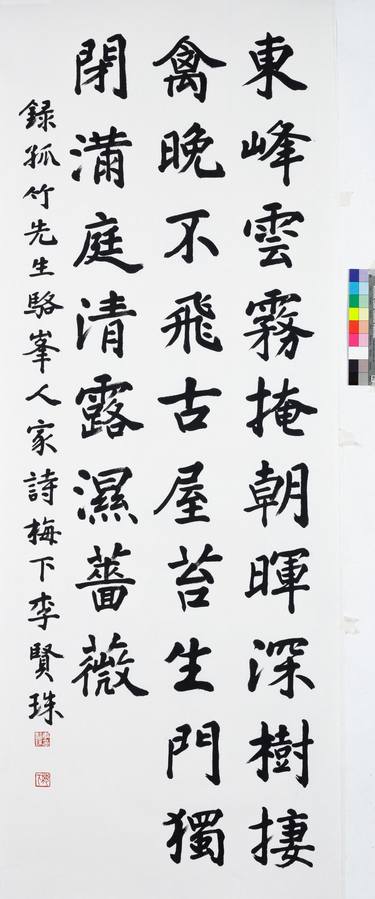 東峰雲霧掩朝暉深樹捿
禽晚不飛古屋苔生門獨
閉滿庭清露濕薔薇
録孤竹先生駱峯人家詩梅下李賢珠